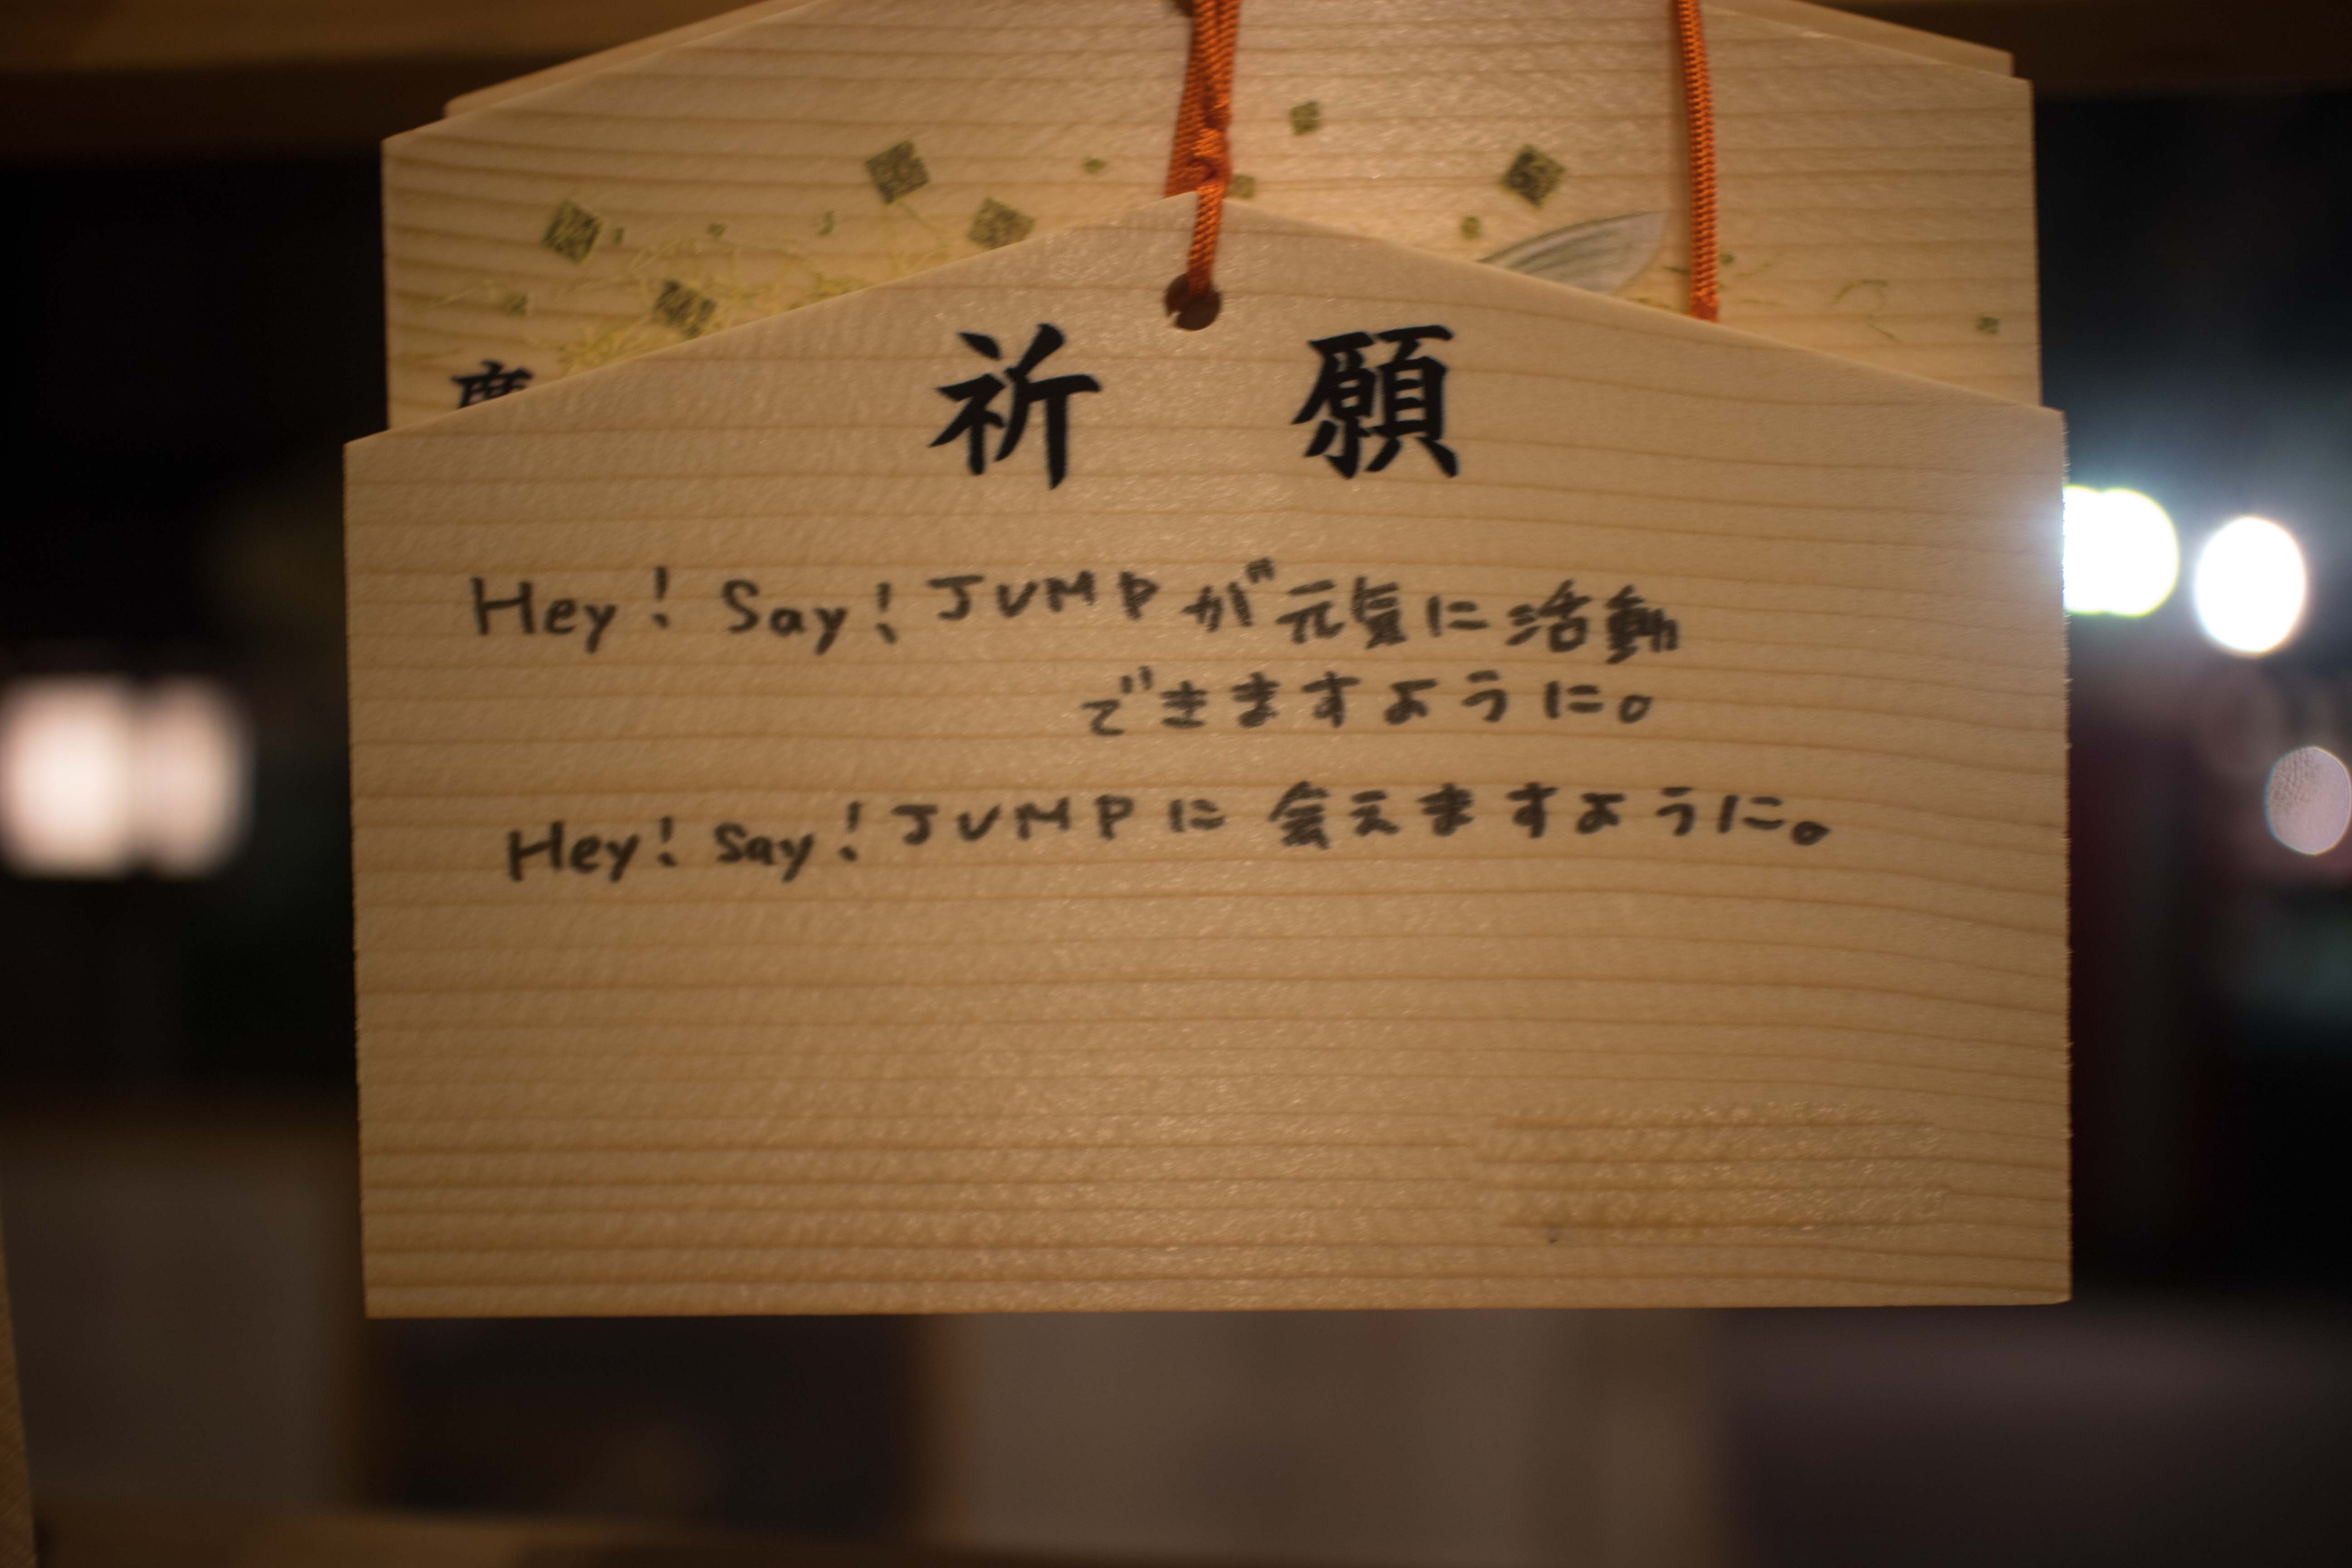 祈願
Hey! Say! JUMPが元気に活動
できますように。
Hey! Say! JUMPに会えますように。